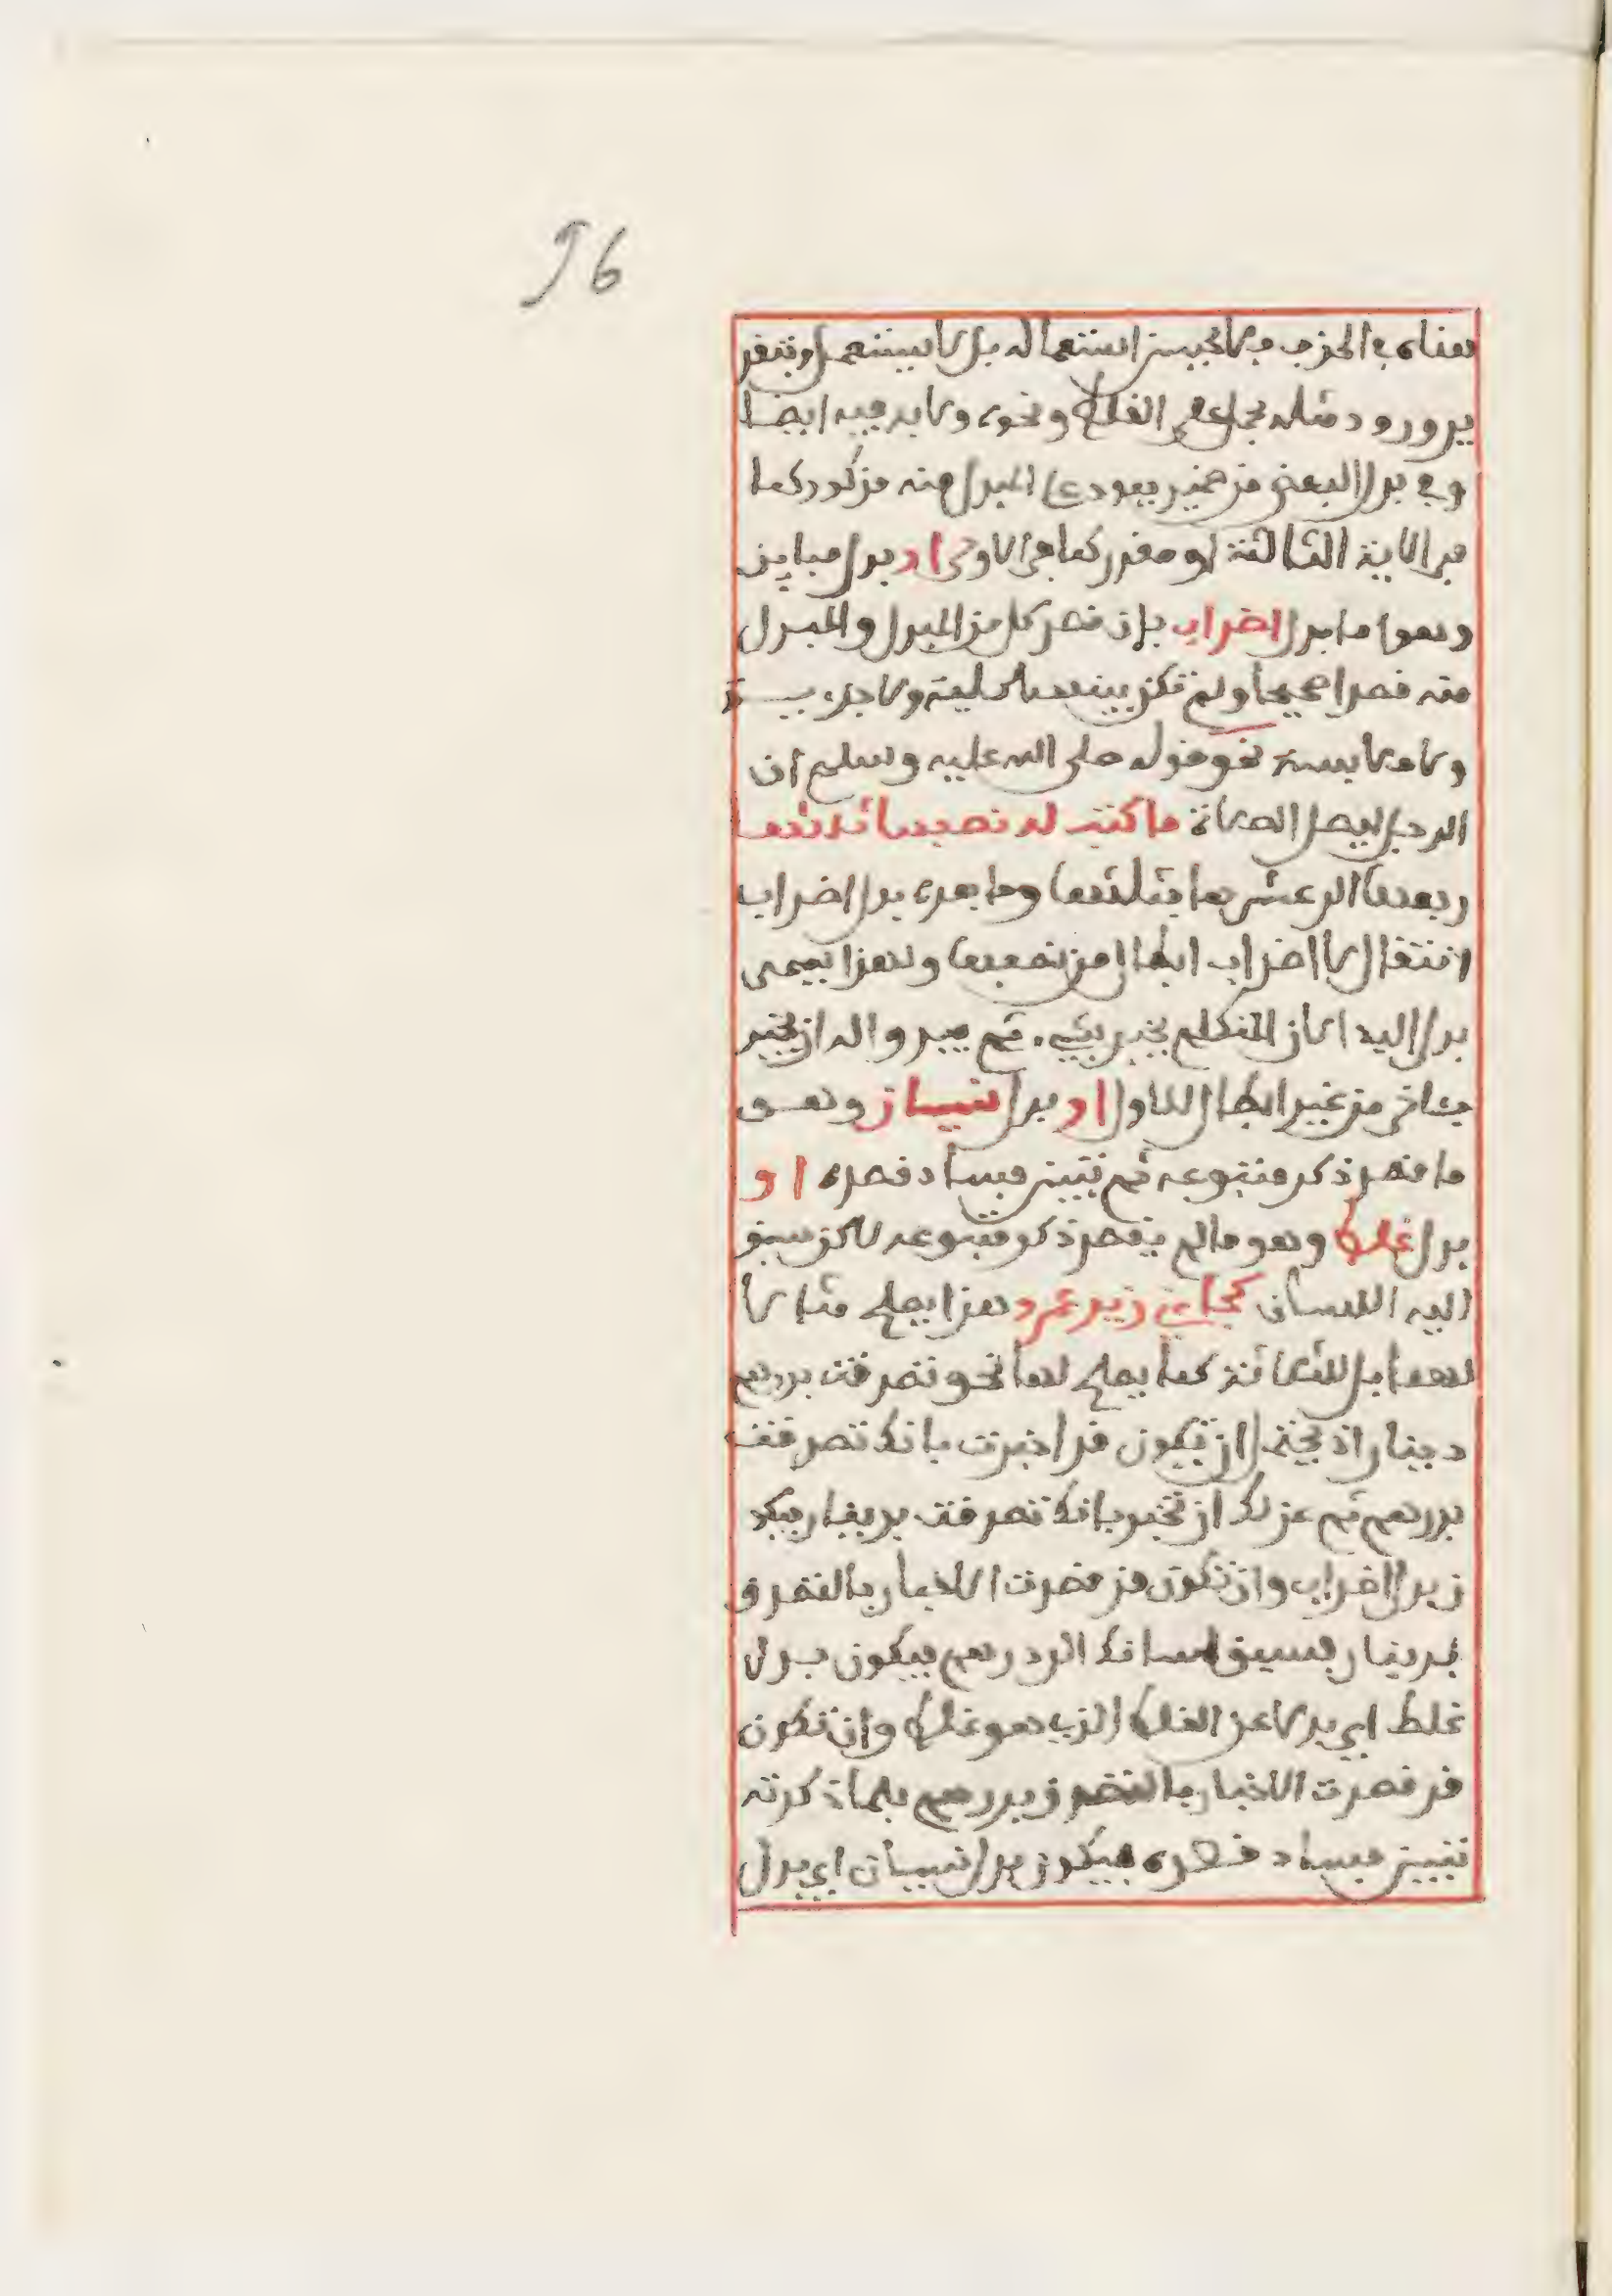 96
معناه في الحذف فلا يحسن استعماله بل لا يستعمل وبتقد
ير ورود مثله يحمل على الغلط ونحوه ولا بد فيه ايضا
وفي بدل البعض من ضمير يعود على المبدل منه مذكور كما
في الاية الثالثة او مقدر كما في الاولى او بدل مباين
وهو اما بدل اضراب بان قصد كل من المبدل والمبدل
منه قصدا صحيحا ولم تكن بينهما كلية ولا جزءيــة
ولا ملابسة نحو قوله صلى الله عليه وسلم ان
الرجل ليصل الصلاة ما كتب له نصفها ثلثها
ربعها الى عشرها فثلثها وما بعده بدل اضراب
انتقال لا اضراب ابطال من نصفها ولهذا يسمى
بدل البداء لان المتكلم يخبر بشيء ثم يبدو له ان يخبر
بآخر من غير ابطال للاول او بدل نسيان وهــو
ما قصد ذكر متبوعه ثم تبين فساد قصده او
بدل غلط وهو ما لم يقصد ذكر متبوعه لاكن سبق
اليه اللسان كجاءني زيد عمرو هذا يصلح مثالا
لهما بل للثلاثة كما يصلح لها نحو تصدقت بدرهم
دينار اذ يحتمل ان تكون قد اخبرت بانك تصدقت
بدرهم ثم عن لك ان تخبر بانك تصدقت بدينار فيكو
ن بدل اضراب وان تكون قد قصدت الاخبار بالتصدق
بدينار فسبق لسانك الى درهم فيكون بدل
غلط اي بدلا عن الغلط الذي هو غلط وان تكون
قد قصدت الاخبار بالتصدق بدرهم فلما ذكرته
تبين فساد قصده فيكون بدل نسيان اي بدل